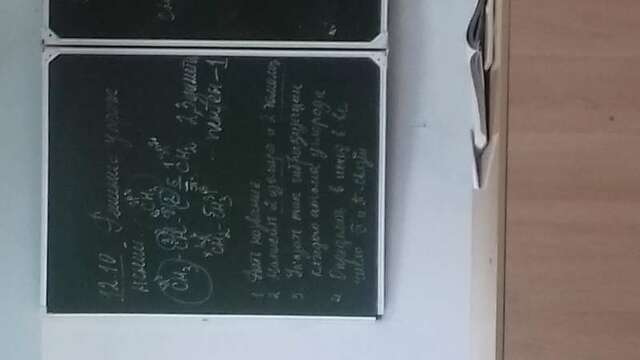 12.10 Решение упраж
нений
CH₃
CH₃ - CH - C = CH₂ 2,3 димети
CH₂ - CH₃ пентен-1
1 Дать название
2 Написать 2 изомера и 2 гомолога
3 Указать тип гибридизации
каждого атома углерода
4 Определить в исход в-ве
число б и π-связи